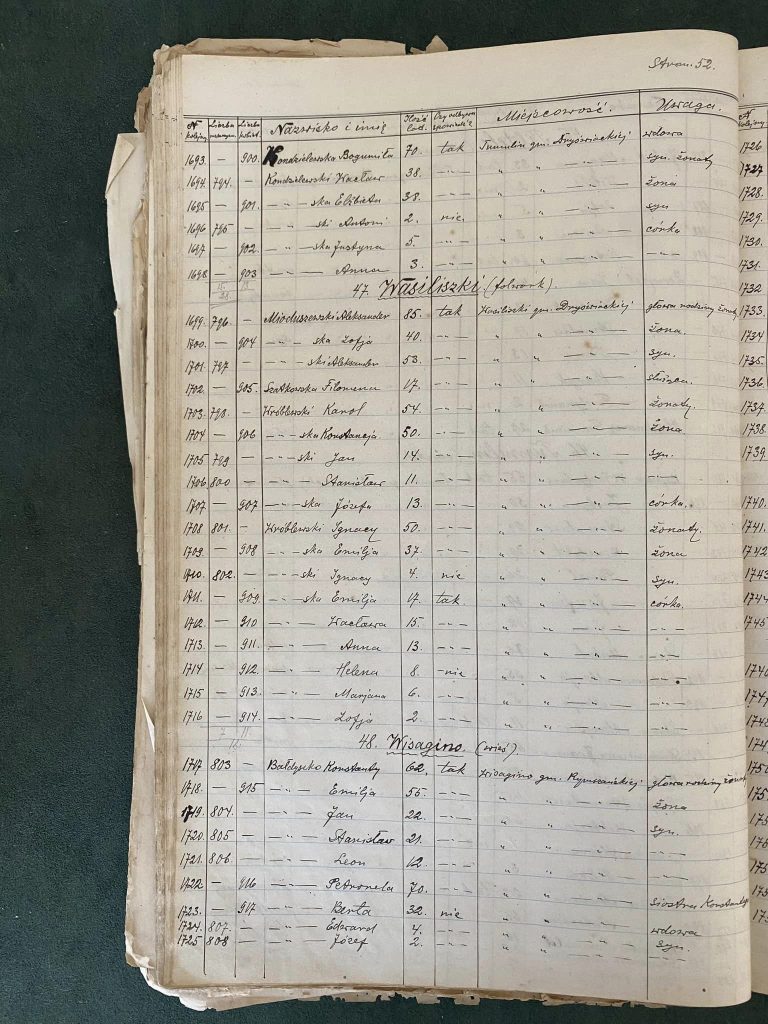 Stron. 52.
N kolejny Liczba mężczyzn Liczba kobiet Nazwisko i imię Ilość lat. Czy odbywa spowiedź? Miejscowość. Uwaga.
1693. — 900. Kondzielewska Bogumiła 70. tak gm. wdowa
1694. 794. — Kondzielewski Wacław 38. — „ — „ „ — — syn. żonaty
1695 — 901. — „ — ska Elżbieta 38. — „ — „ „ — — żona
1696 795 — — „ — ski Antoni 2. nie „ „ — — syn
1697 — 902 — „ — ska Justyna 5. — „ — „ „ — — córka
1698. — 903 — „ — Anna 3. — „ — „ „ — — — „ —
47. Wasiliszki (folwark).
1699. 796. — Mioduszewski Aleksander 85. tak Wasiliszki gm. głowa rodziny żonaty
1700. — 904 — „ — ska Zofja 40. — „ — „ „ — — żona.
1701. 797 — — „ — ski Aleksander 53. — „ — „ „ — — syn.
1702. — 905. Szatkowska Filomena 17. — „ — „ „ — —
1703. 798. — Wróblewski Karol 54. — „ — „ „ — — żonaty.
1704 — 906 — „ — ska Konstancja 50. — „ — „ „ — — żona
1705 799 — — „ — ski Jan 14. — „ — „ „ — — syn.
1706 800 — — „ — Stanisław 11. — „ — „ „ — — — „ —
1707 — 907 — „ — ska Józefa 13. — „ — „ „ — — córka.
1708 801. — Wróblewski Ignacy 50. — „ — „ „ — — żonaty.
1709. — 908 — „ — ska Emilja 37. — „ — „ „ — — żona
1710. 802. — — „ — ski Ignacy 4. nie „ „ — — syn.
1711. — 909. — „ — ska Emilja 17. tak „ „ — — córka.
1712. — 910 — „ — Wacława 15 — „ — „ „ — — — „ —
1713. — 911. — „ — Anna 13. — „ — „ „ — — — „ —
1714 — 912. — „ — Helena 8. nie „ „ — — — „ —
1715 — 913. — „ — Marjana 6. — „ — „ „ — — — „ —
1716 — 914. — „ — Zofja 2. — „ — „ „ — — — „ —
48. Wisagino (wieś).
1717 803 — Bałdyszko Konstanty 62. tak Wisagino gm. Rymszańskiej głowa rodziny żonaty
1718. — 915 — „ — Emilja 55. — „ — „ „ — — żona
1719. 804. — — „ — Jan 22. — „ — „ „ — — syn.
1720. 805 — — „ — Stanisław 21. — „ — „ „ — — — „ —
1721. 806. — — „ — Leon 12. — „ — „ „ — — — „ —
1722 — 916 — „ — Petronela 70. — „ — „ „ — — siostra Konstantego
1723. — 917 — „ — Berta 32. nie „ „ — — wdowa
1724. 807. — — „ — Edward 4. — „ — „ „ — — syn.
1725 808 — — „ — Józef 2. — „ — „ „ — — — „ —
N kolejny
1726
1727
1728.
1729.
1730.
1731.
1732
1733.
1734
1735.
1736.
1737.
1738.
1739.
1740.
1741.
1742
1743
1744
1745